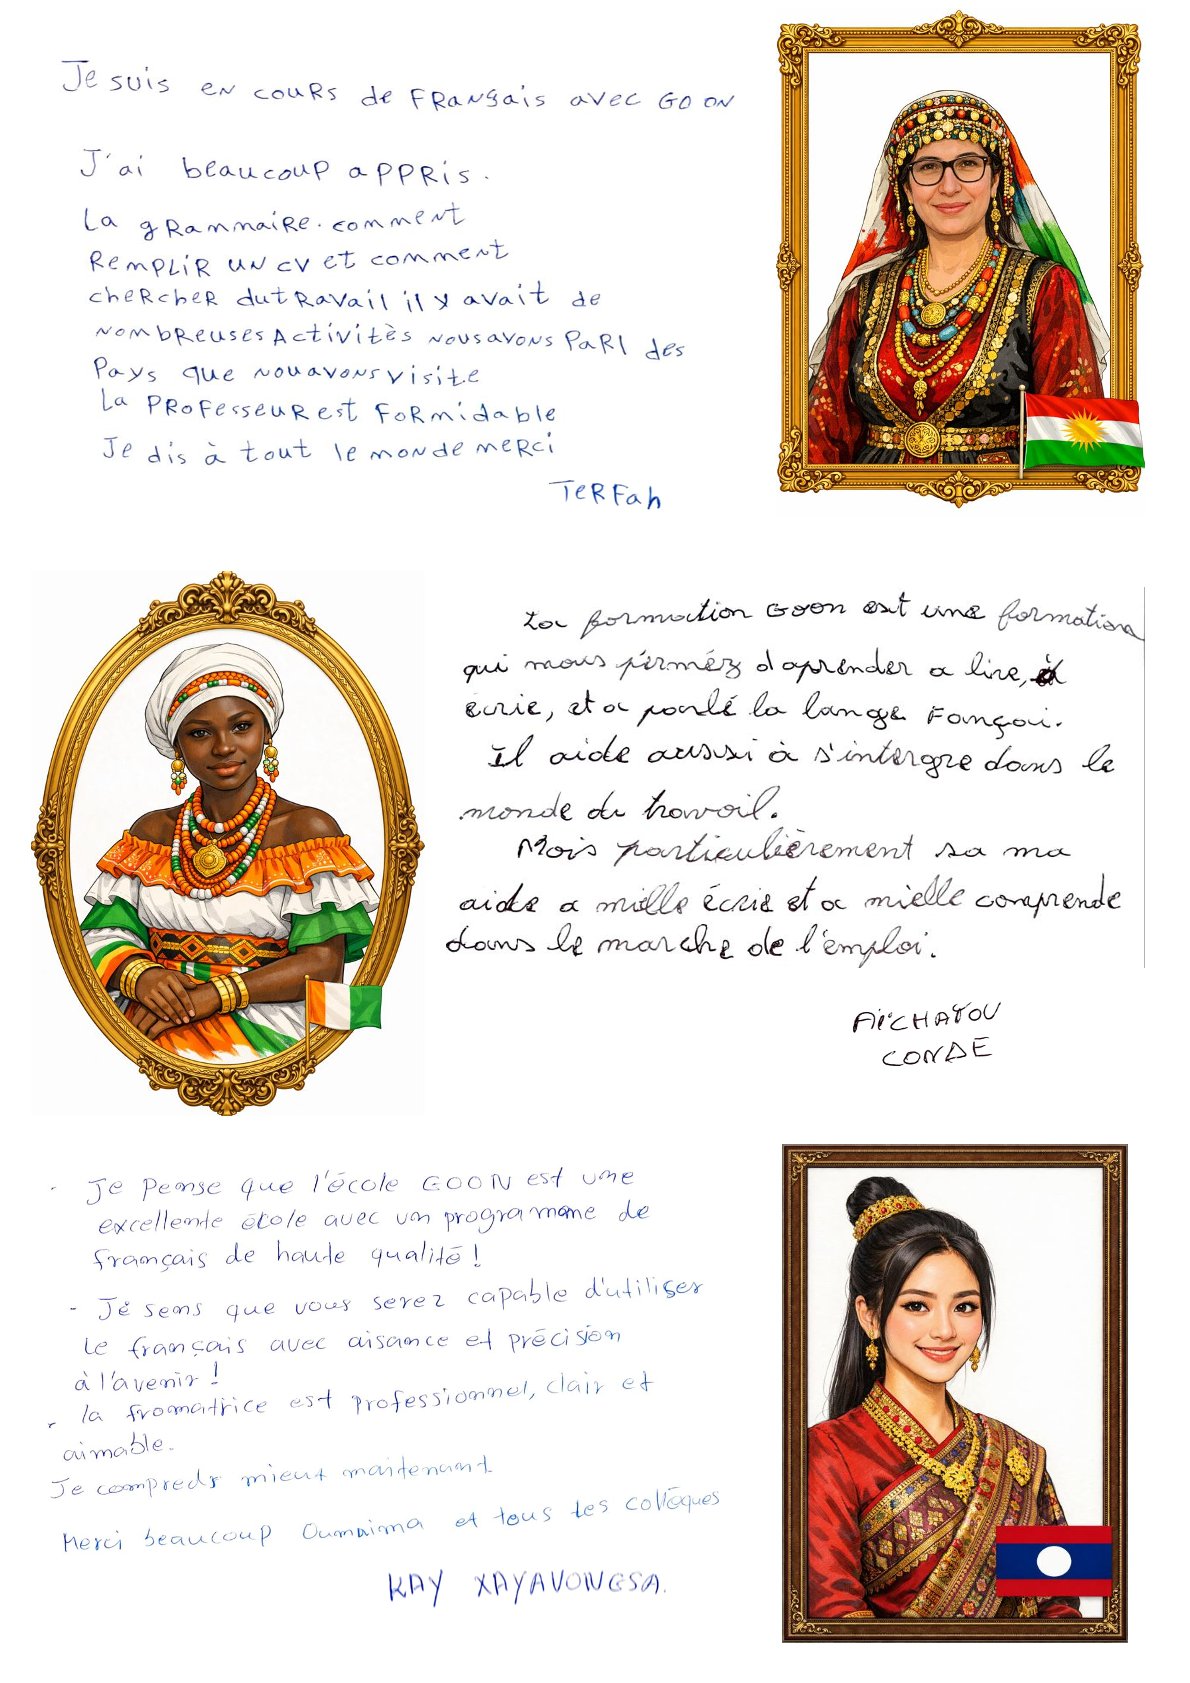 Je suis en cours de Français avec GO ON
J'ai beaucoup appris.
La grammaire. comment
Remplir un cv et comment
chercher du travail il y avait de
nombreuses Activitès nous avons Parl des
Pays que nou avons visite
La Professeur est formidable
Je dis à tout le monde merci
Terfah
La formation Goon est une formation
qui nous pérméz d'aprender a lire, à
écrie, et a parlé la lange Fançai.
Il aide aussi à s'intergre dans le
monde du travail.
Mais particulièrement sa ma
aide a mielle écrie et a mielle comprende
dans le marche de l'emploi.
AÏCHATOU
CONDE
- Je pense que l'école GOON est une
excellente école avec un programme de
français de haute qualité !
- Je sens que vous serez capable d'utiliser
le français avec aisance et précision
à l'avenir !
- la fromatrice est professionnel, clair et
aimable.
Je compreds mieux maitenant
Merci beaucoup Oumaima et tous tes collèques
KAY XAYAVONGSA.